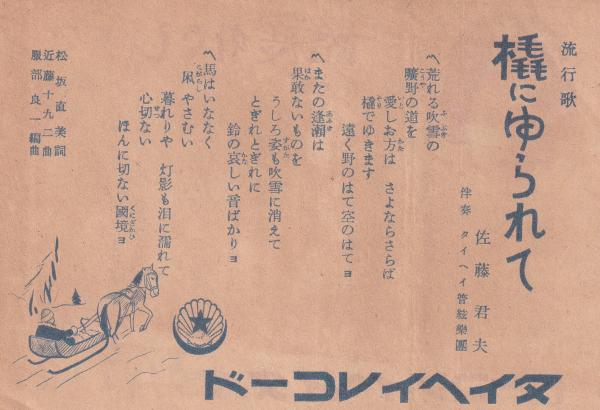 流行歌
橇にゆられて
佐藤君夫
伴奏 タイヘイ管絃樂團
〽荒れる吹雪の
曠野の道を
愛しお方は さよならさらば
橇でゆきます
遠く野のはて空のはてヨ
〽またの逢瀬は
果敢ないものを
うしろ姿も吹雪に消えて
とぎれとぎれに
鈴の哀しい音ばかりヨ
〽馬はいななく
凩 やさむい
暮れりや 灯影も泪に濡れて
心切ない
ほんに切ない國境ヨ
松坂直美詞
近藤十九二曲
服部良一編曲
タイヘイレコード